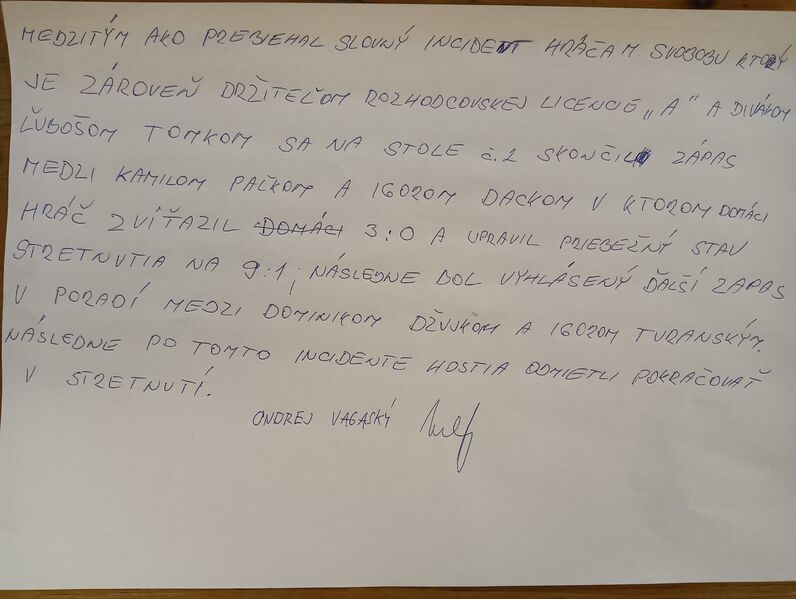 MEDZITÝM AKO PREBIEHAL SLOVNÝ INCIDENT HRÁČA M SVOBOBU KTORÝ
JE ZÁROVEŇ DRŽITEĽOM ROZHODCOVSKEJ LICENCIE „A“ A DIVÁKOM
ĽUBOŠOM TOMKOM SA NA STOLE č.2 SKONČIL ZÁPAS
MEDZI KAMILOM PAĽKOM A IGOROM DACKOM V KTOROM DOMÁCI
HRÁČ ZVÍŤAZIL DOMÁCI 3:0 A UPRAVIL PRIEBEŽNÝ STAV
STRETNUTIA NA 9:1, NÁSLEDNE BOL VYHLÁSENÝ ĎALŠÍ ZÁPAS
V PORADÍ MEDZI DOMINIKOM DŽUJKOM A IGOROM TURANSKÝM.
NÁSLEDNE PO TOMTO INCIDENTE HOSTIA ODMIETLI POKRAČOVAŤ
V STRETNUTÍ.
ONDREJ VAGASKÝ